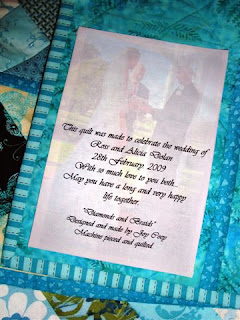 This quilt was made to celebrate the wedding of
Ross and Alicia Dolan
28th February, 2009
With so much love to you both...
May you have a long and very happy
life together.
"Diamonds and Braids"
Designed and made by Joy Coey
Machine pieced and quilted.